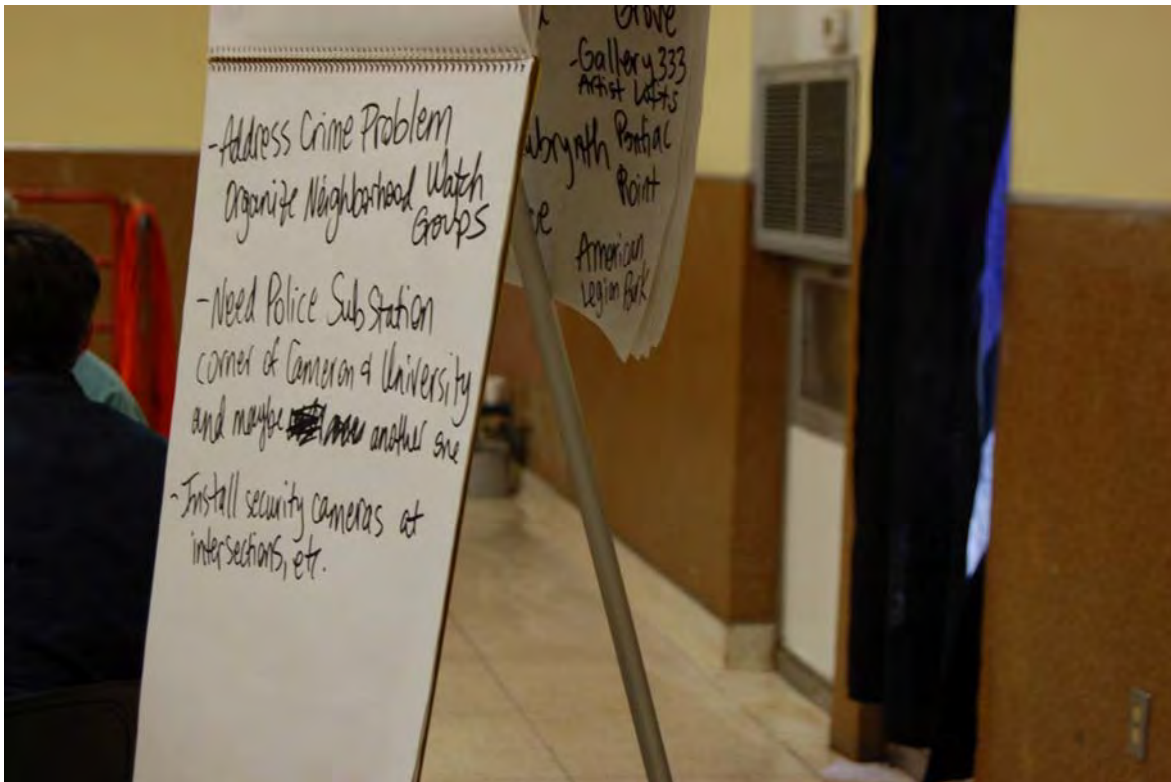 -Address Crime Problem
Organize Neighborhood Watch
Groups
-Need Police SubStation
corner of Cameron & University
and maybe another one
-Install security cameras at
intersections, etc.
Grove
-Gallery 333
Artist Lofts
Pontiac
Point
American
Legion Park